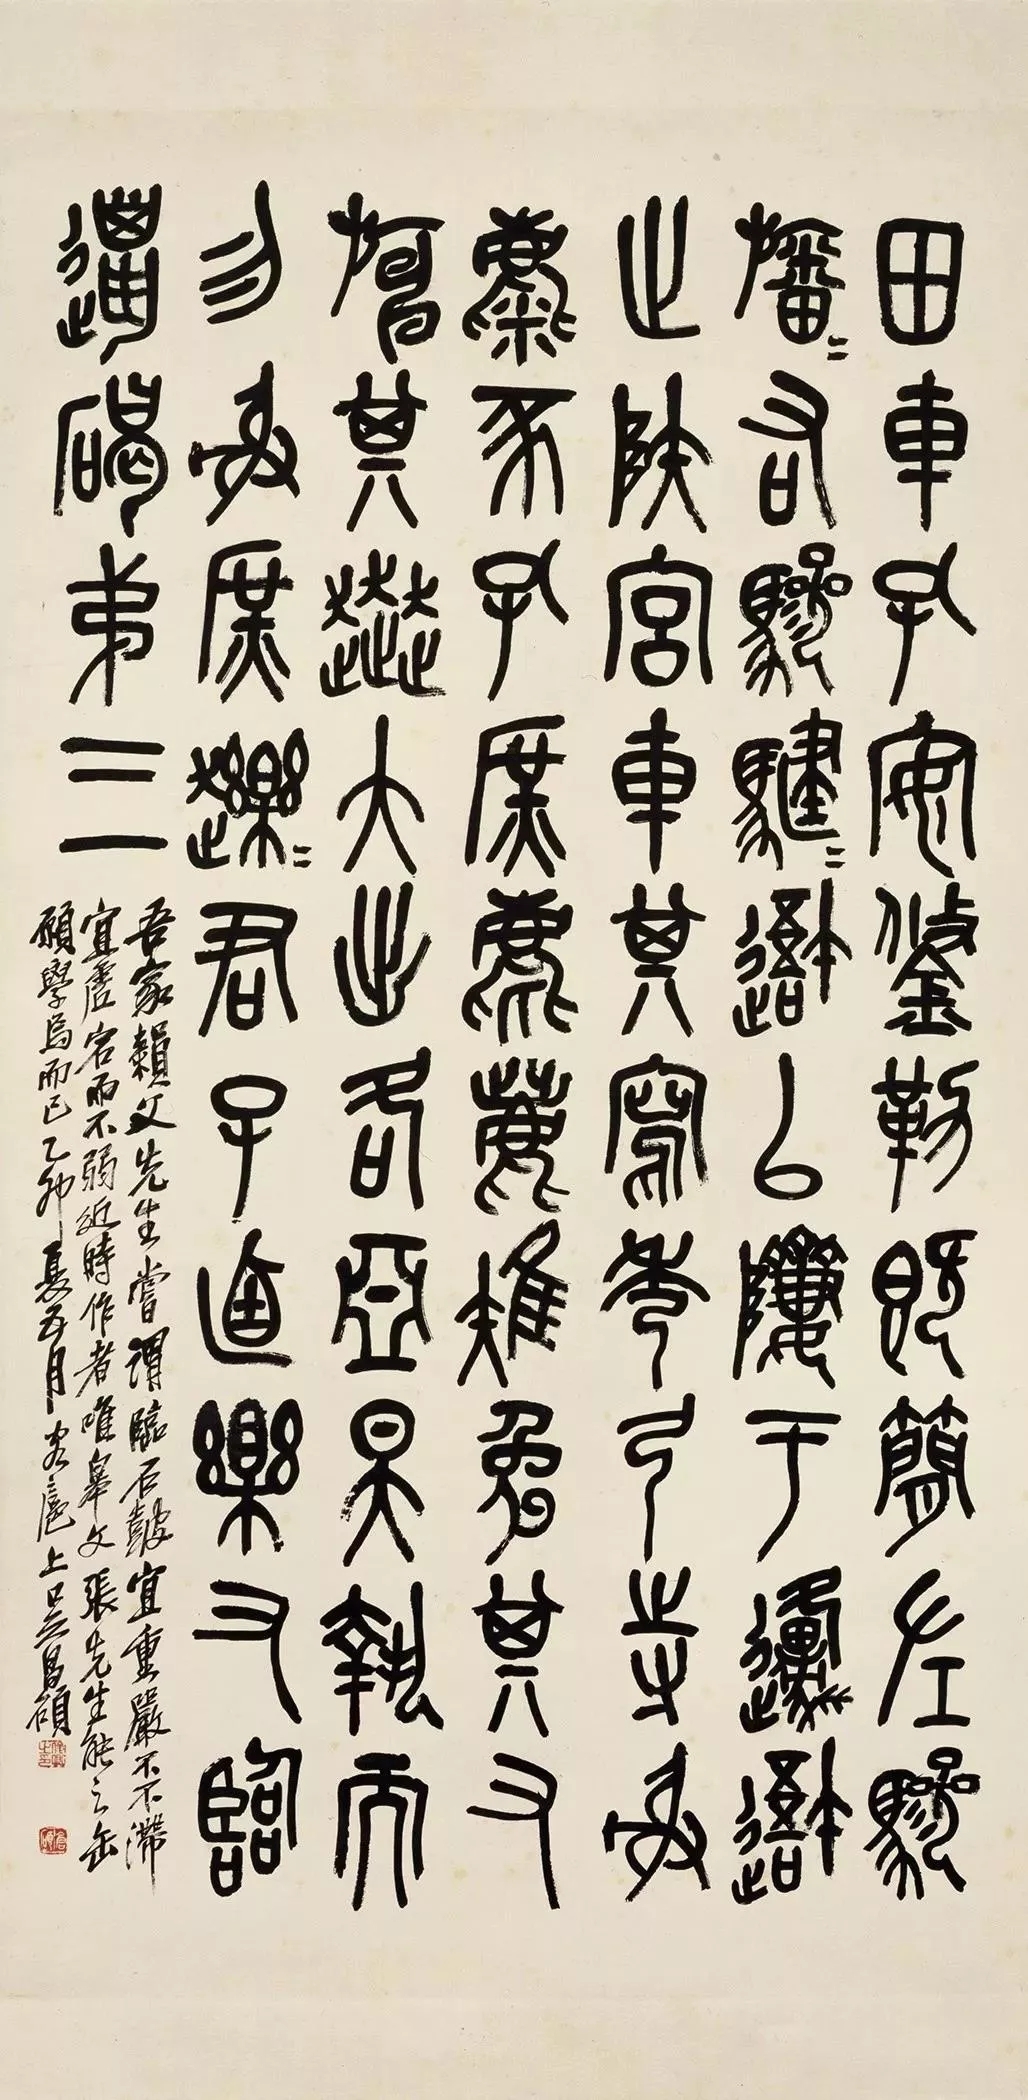 田車孔安鋚勒既簡左驂
旛〻右驂騝〻吾以隮于邍吾
止陜宮車其寫秀弓寺射
麋豕孔庶麀鹿雉兔其又
旃其奔大出各亞昊執而
勿射庶趯〻君子逌樂又臨
邋碣弟三
吾家文先生嘗謂臨石鼓宜重嚴而不滯
宜虛宕而不弱近時作者唯皋文張先生能之缶
願學焉而已乙卯夏五月客扈上吳昌碩